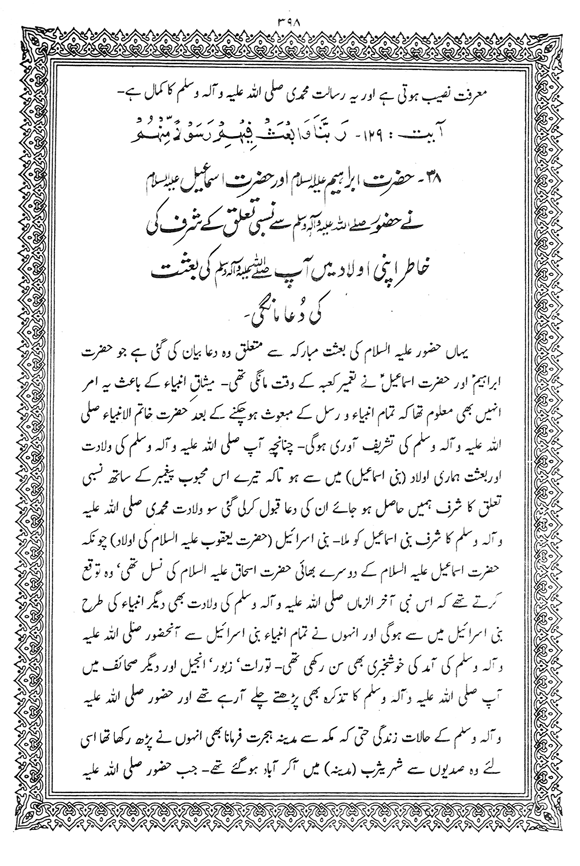 ۳۹۸
معرفت نصیب ہوتی ہے اور یہ رسالت محمدی صلی اللہ علیہ و آلہ وسلم کا کمال ہے-
آیت : ۱۲۹- رَبَّنَا وَابْعَثْ فِيْهِمْ رَسُوْلًا مِّنْهُمْ
۳۸- حضرت ابراہیم علیہ السلام اور حضرت اسماعیل علیہ السلام
نے حضور صلی اللہ علیہ وآلہ وسلم سے نسبی تعلق کے شرف کی
خاطر اپنی اولاد میں آپ صلی اللہ علیہ وآلہ وسلم کی بعثت
کی دُعا مانگی-
یہاں حضور علیہ السلام کی بعثت مبارکہ سے متعلق وہ دعا بیان کی گئی ہے جو حضرت
ابراہیمؑ اور حضرت اسماعیلؑ نے تعمیر کعبہ کے وقت مانگی تھی- میثاقِ انبیاء کے باعث یہ امر
انہیں بھی معلوم تھا کہ تمام انبیاء و رسل کے مبعوث ہو چکنے کے بعد حضرت خاتم الانبیاء صلی
اللہ علیہ و آلہ وسلم کی تشریف آوری ہوگی- چنانچہ آپ صلی اللہ علیہ و آلہ وسلم کی ولادت
اور بعثت ہماری اولاد (بنی اسماعیل) میں سے ہو تاکہ تیرے اس محبوب پیغمبر کے ساتھ نسبی
تعلق کا شرف ہمیں حاصل ہو جائے ان کی دعا قبول کرلی گئی سو ولادت محمدی صلی اللہ علیہ
و آلہ وسلم کا شرف بنی اسماعیل کو ملا- بنی اسرائیل (حضرت یعقوب علیہ السلام کی اولاد) چونکہ
حضرت اسماعیل علیہ السلام کے دوسرے بھائی حضرت اسحاق علیہ السلام کی نسل تھی‘ وہ توقع
کرتے تھے کہ اس نبی آخر الزماں صلی اللہ علیہ و آلہ وسلم کی ولادت بھی دیگر انبیاء کی طرح
بنی اسرائیل میں سے ہوگی اور انہوں نے تمام انبیاء بنی اسرائیل سے آنحضور صلی اللہ علیہ
و آلہ وسلم کی آمد کی خوشخبری بھی سن رکھی تھی- تورات‘ زبور‘ انجیل اور دیگر صحائف میں
آپ صلی اللہ علیہ و آلہ وسلم کا تذکرہ بھی پڑھتے چلے آرہے تھے اور حضور صلی اللہ علیہ
و آلہ وسلم کے حالات زندگی حتیٰ کہ مکہ سے مدینہ ہجرت فرمانا بھی انہوں نے پڑھ رکھا تھا اسی
لئے وہ صدیوں سے شہر یثرب (مدینہ) میں آکر آباد ہوگئے تھے- جب حضور صلی اللہ علیہ